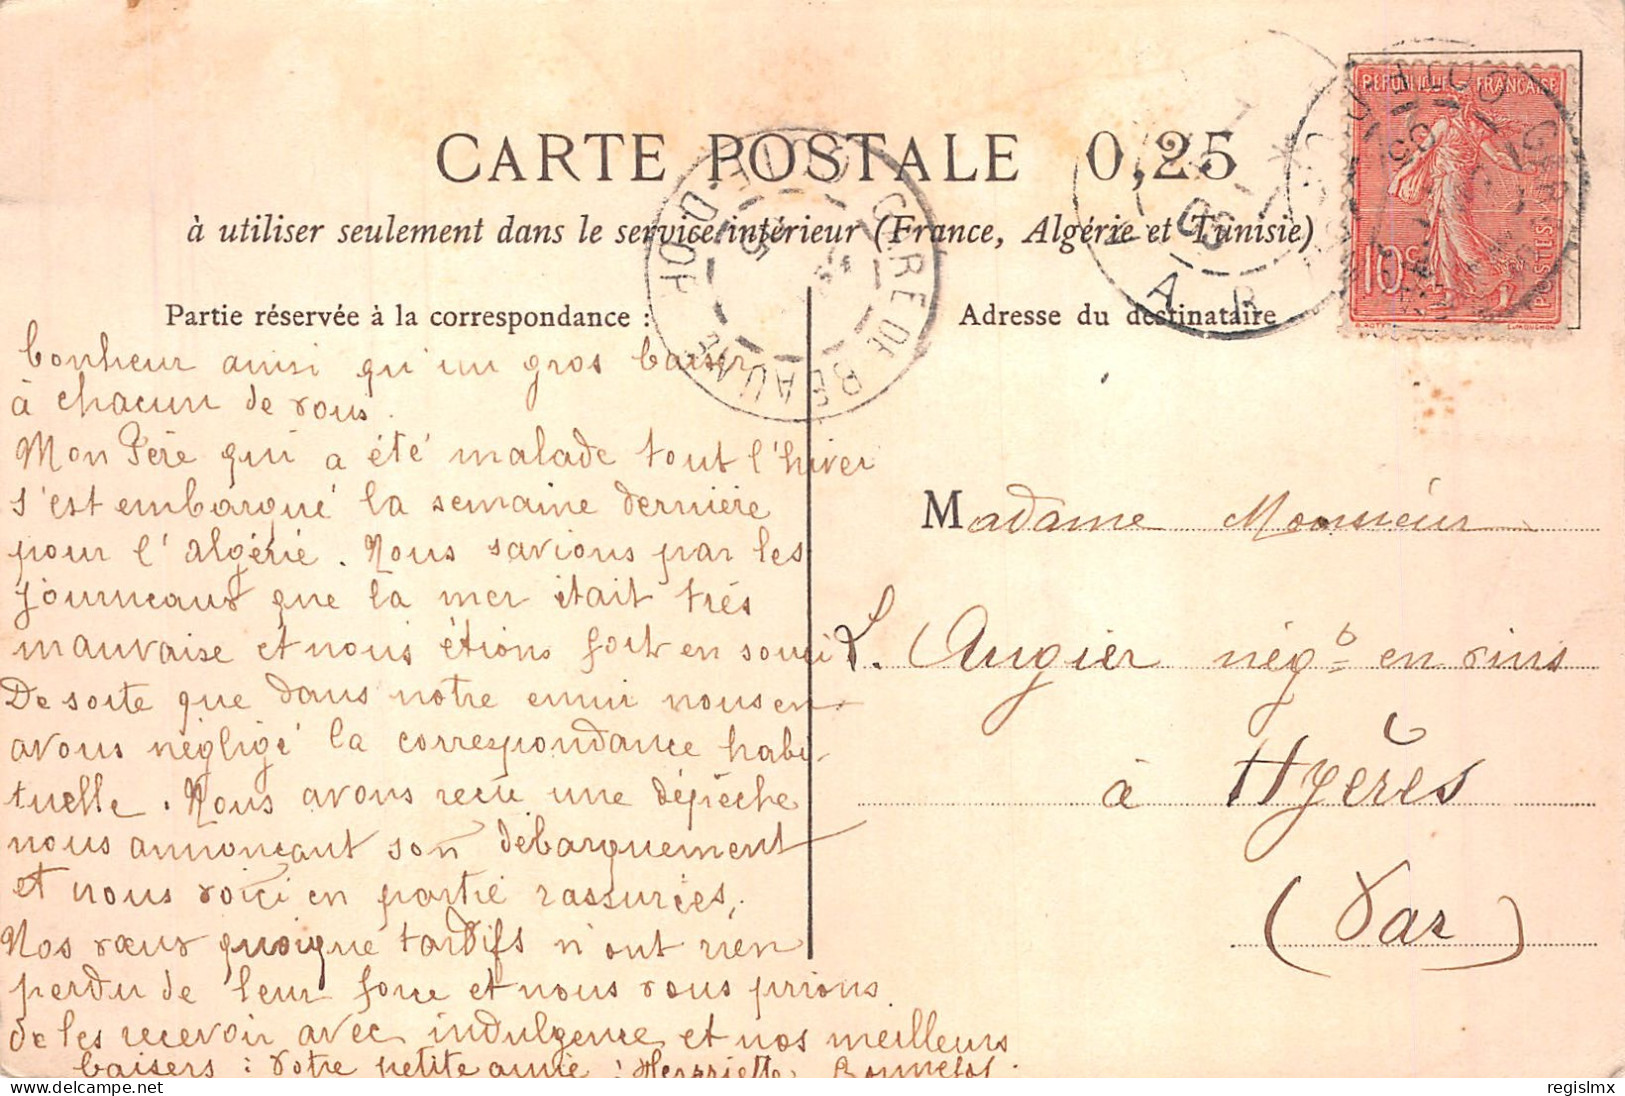 CARTE POSTALE 0,25
à utiliser seulement dans le service intérieur (France, Algérie et Tunisie)
Partie réservée à la correspondance :
bonheur ainsi qu'un gros baiser
à chacun de vous.
Mon Père qui a été malade tout l'hiver
s'est embarqué la semaine dernière
pour l'algérie. Nous savions par les
journaux que la mer était très
mauvaise et nous étions fort en souci
De sorte que dans notre ennui nous en
avous négligé la correspondance habi-
tuelle. Nous avons reçu une dépèche
nous annonçant son débarquement
et nous voici en partie rassurées,
Nos vœux quoique tardifs n'ont rien
perdu de leur force et nous vous prions
de les recevoir avec indulgence et nos meilleurs
baisers : Votre petite amie : Henriette Bonnefof.
Adresse du destinataire
REPUBLIQUE FRANÇAISE
10 c
POSTES
GARE DE BEAUNE
CÔTE-D'OR
Madame Monsieur
L. Augier négt en vins
à Hyères
(Var)
delcampe.net
regislmx